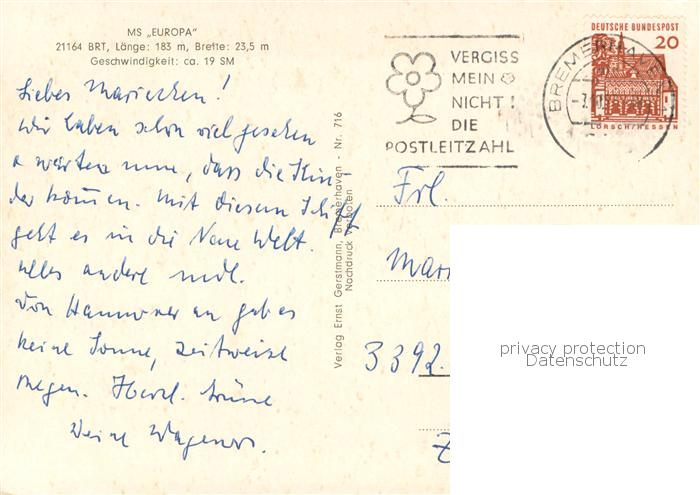 MS „EUROPA"
21164 BRT, Länge: 183 m, Breite: 23,5 m
Geschwindigkeit: ca. 19 SM
Liebes Mariechen!
Wir haben schon viel gesehen
u warten nun, dass die Kin-
der kommen. Mit diesem Schiff
geht es in die Neue Welt.
Alles andere mdl.
Von Hannover an gab es
keine Sonne, zeitweise
Regen. Herzl. Grüsse
Deine Wageners.
Verlag Ernst Gerstmann, Bremerhaven - Nr. 716
Nachdruck verboten
VERGISS
MEIN
NICHT!
DIE
POSTLEITZAHL
BREMERHAVEN
DEUTSCHE BUNDESPOST
20
LORSCH/HESSEN
Frl.
Mari
3392.
privacy protection
Datenschutz